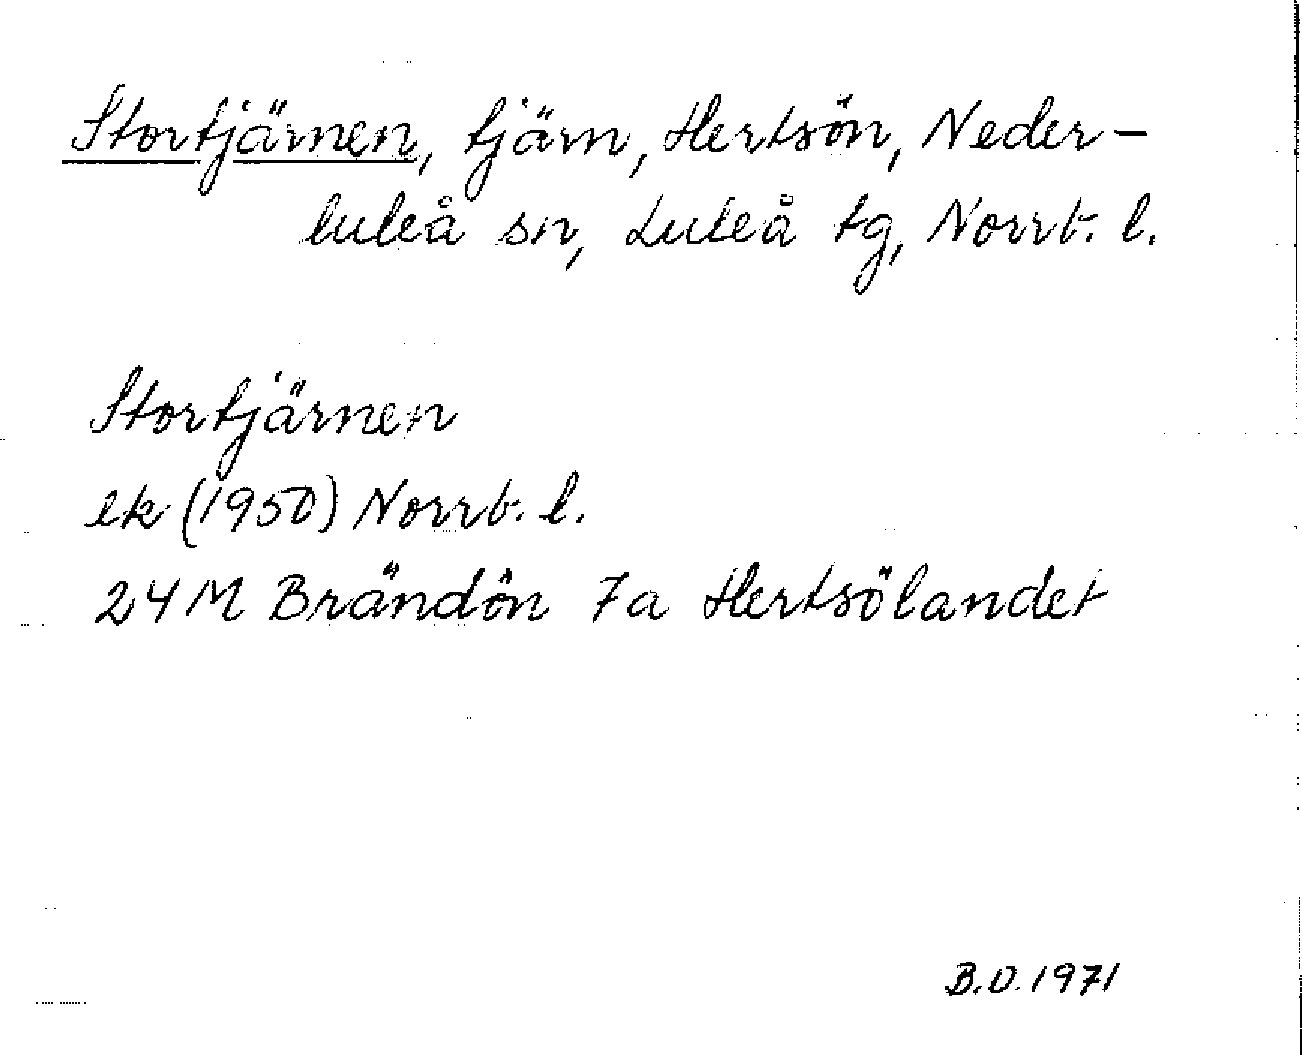 Stortjärnen, tjärn, Hertsön, Neder-
luleå sn, Luleå tg, Norrb. l.
Stortjärnen
ek (1950) Norrb. l.
24M Brändön 7a Hertsölandet
B.U. 1971